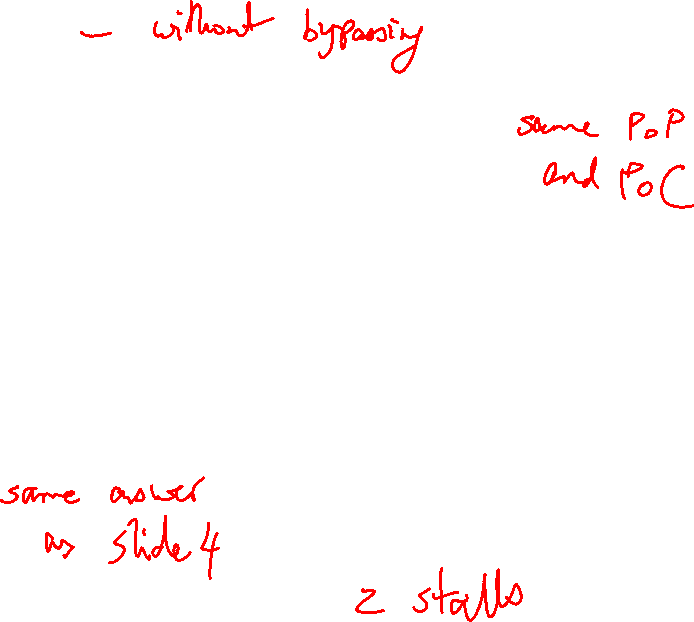 - without bypassing
same PoP
and PoC
same answer
as slide 4
2 stalls